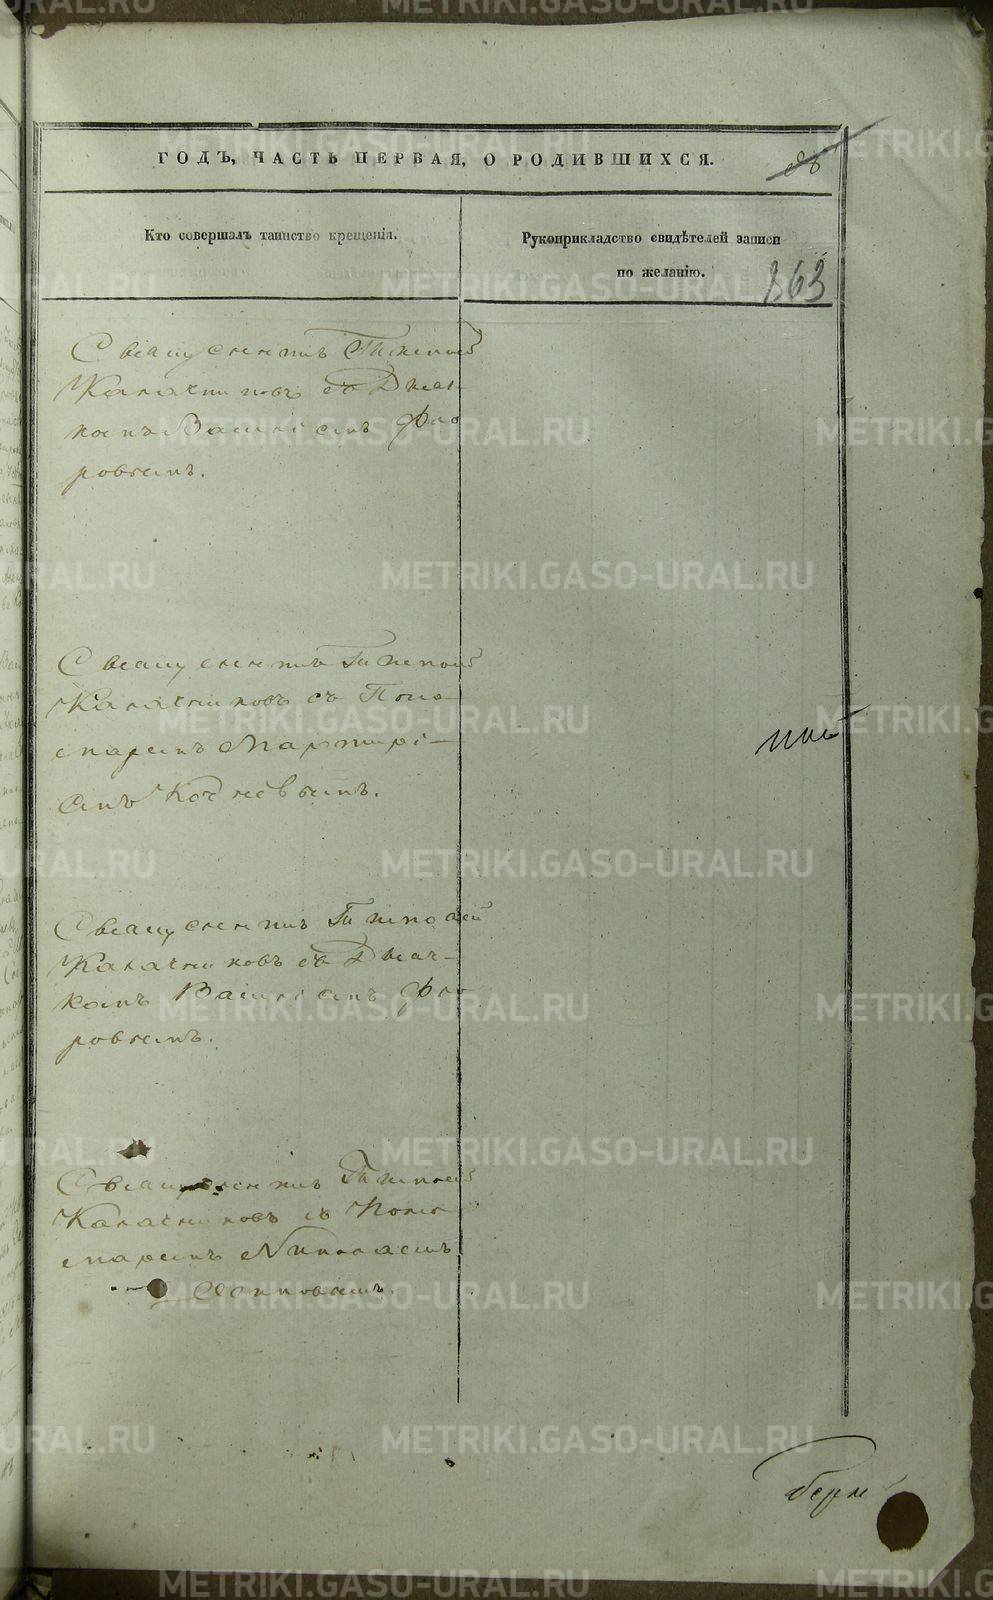 ГОДЪ, ЧАСТЬ ПЕРВАЯ, О РОДИВШИХСЯ.
Кто совершалъ таинство крещенія.
Рукоприкладство свидѣтелей записи
по желанію.
363
Священникъ Тимофей
Калачниковъ съ Дьяч-
комъ Василіемъ Фло
ровымъ.
Священникъ Тимофей
Калачниковъ съ Поно-
маремъ Мартирі-
емъ Кочневымъ.
Священникъ Тимофей
Калачниковъ съ Дьяч-
комъ Василіемъ Фло
ровымъ.
Священникъ Тимофей
Калачниковъ съ Поно
маремъ Николаемъ
Осиповымъ.
METRIKI.GASO-URAL.RU